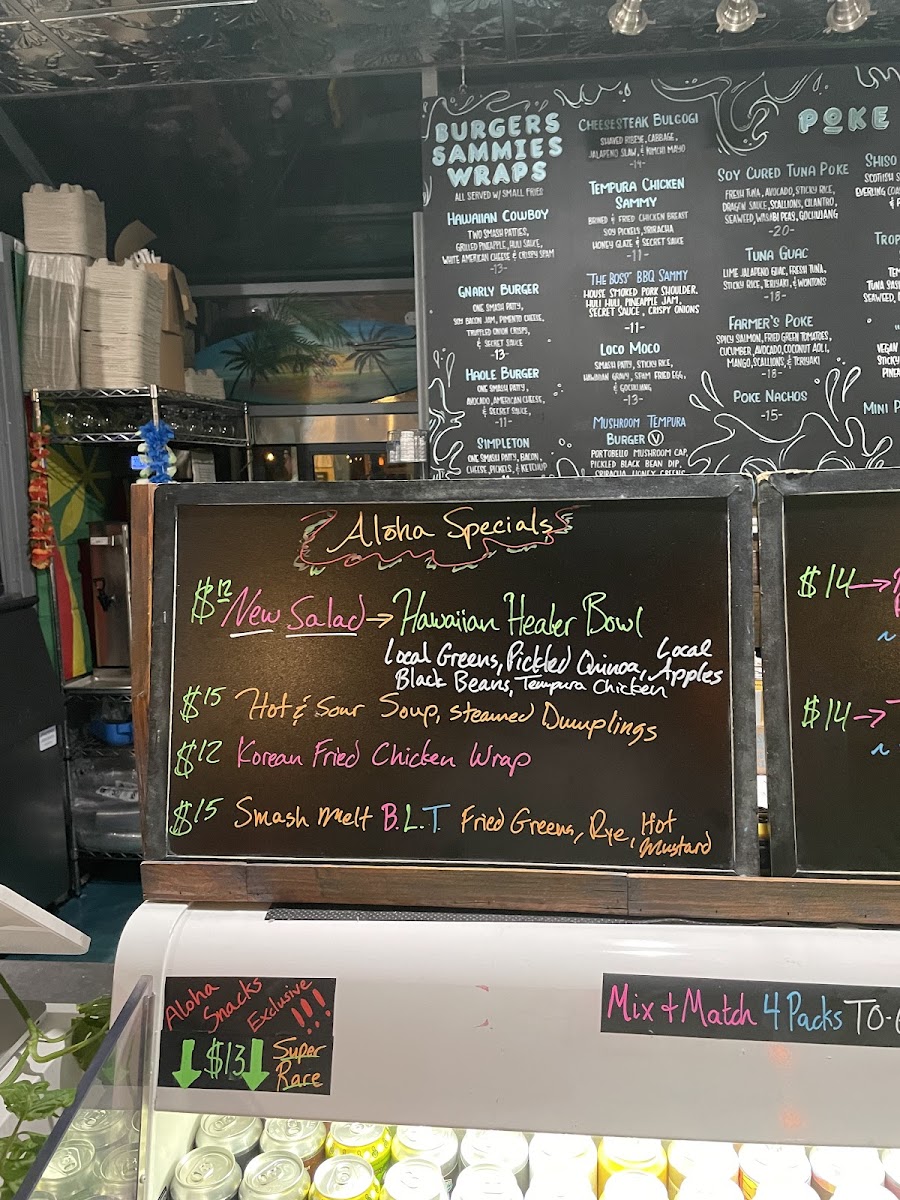 BURGERS
SAMMIES
WRAPS
ALL SERVED W/ SMALL FRIES
HAWAIIAN COWBOY
TWO SMASH PATTIES,
GRILLED PINEAPPLE, HULI SAUCE,
WHITE AMERICAN CHEESE & CRISPY SPAM
-13-
GNARLY BURGER
ONE SMASH PATTY,
SOY BACON JAM, PIMENTO CHEESE,
TRUFFLED ONION CRISPS,
& SECRET SAUCE
-13-
HAOLE BURGER
ONE SMASH PATTY,
AVOCADO, AMERICAN CHEESE,
& SECRET SAUCE,
-11-
SIMPLETON
ONE SMASH PATTY, BACON,
CHEESE, PICKELS, & KETCHUP
CHEESESTEAK BULGOGI
SHAVED RIBEYE, CABBAGE,
JALAPENO SLAW, & KIMCHI MAYO
-14-
TEMPURA CHICKEN
SAMMY
BRINED & FRIED CHICKEN BREAST
SOY PICKELS, SRIRACHA
HONEY GLAZE & SECRET SAUCE
-11-
"THE BOSS" BBQ SAMMY
HOUSE SMOKED PORK SHOULDER,
HULI HULI, PINEAPPLE JAM,
SECRET SAUCE, CRISPY ONIONS
-11-
LOCO MOCO
SMASH PATTY, STICKY RICE,
HAWAIIAN GRAVY, SPAM FRIED EGG,
& GOCHUJANG
-13-
MUSHROOM TEMPURA
BURGER V
PORTOBELLO MUSHROOM CAP,
PICKLED BLACK BEAN DIP,
SRIRACHA HONEY GREENS
POKE
SOY CURED TUNA POKE
FRESH TUNA, AVOCADO, STICKY RICE,
DRAGON SAUCE, SCALLIONS, CILANTRO,
SEAWEED, WASABI PEAS, GOCHUJANG
-20-
TUNA GUAC
LIME JALAPENO GUAC, FRESH TUNA,
STICKY RICE, TERIYAKI, & WONTONS
-18-
FARMER'S POKE
SPICY SALMON, FRIED GREEN TOMATOES,
CUCUMBER, AVOCADO, COCONUT AOLI,
MANGO, SCALLIONS, & TERIYAKI
-18-
POKE NACHOS
-15-
SHISO
VEGAN
STICKY
MINI P
Aloha Specials
$12 New Salad → Hawaiian Healer Bowl
Local Greens, Pickled Quinoa, Local Apples
Black Beans, Tempura Chicken
$15 Hot & Sour Soup, Steamed Dumplings
$12 Korean Fried Chicken Wrap
$15 Smash Melt B.L.T. Fried Greens, Rye, Hot Mustard
$14 →
$14 →
Aloha
Snacks
Exclusive!!!
$13 Super
Rare
Mix + Match 4 Packs TO-